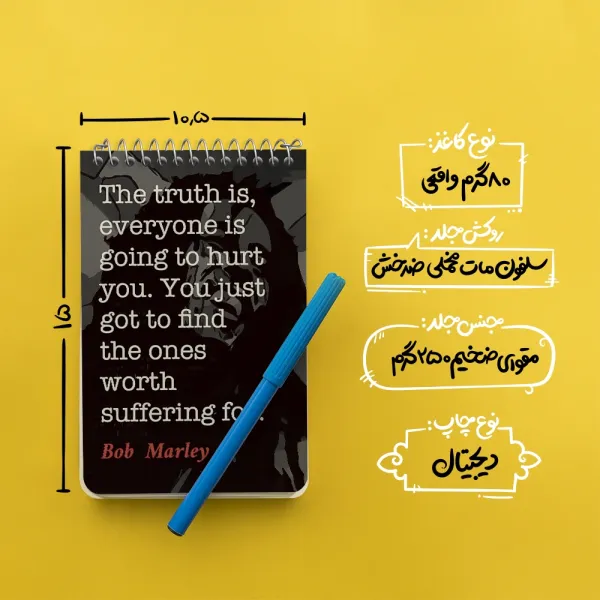 ۱۰٫۵
۱۵
The truth is,
everyone is
going to hurt
you. You just
got to find
the ones
worth
suffering for.
Bob Marley
نوع کاغذ:
۸۰گرم واقعی
روکش مجلد:
سلفون مات مخملی ضدخش
جنس مجلد:
مقوای ضخیم ۲۵۰گرم
نوع چاپ:
دیجیتال